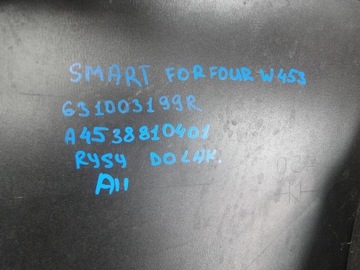 SMART FORFOUR W453
631003199R
A4538810401
RYSY DO LAK.
A11